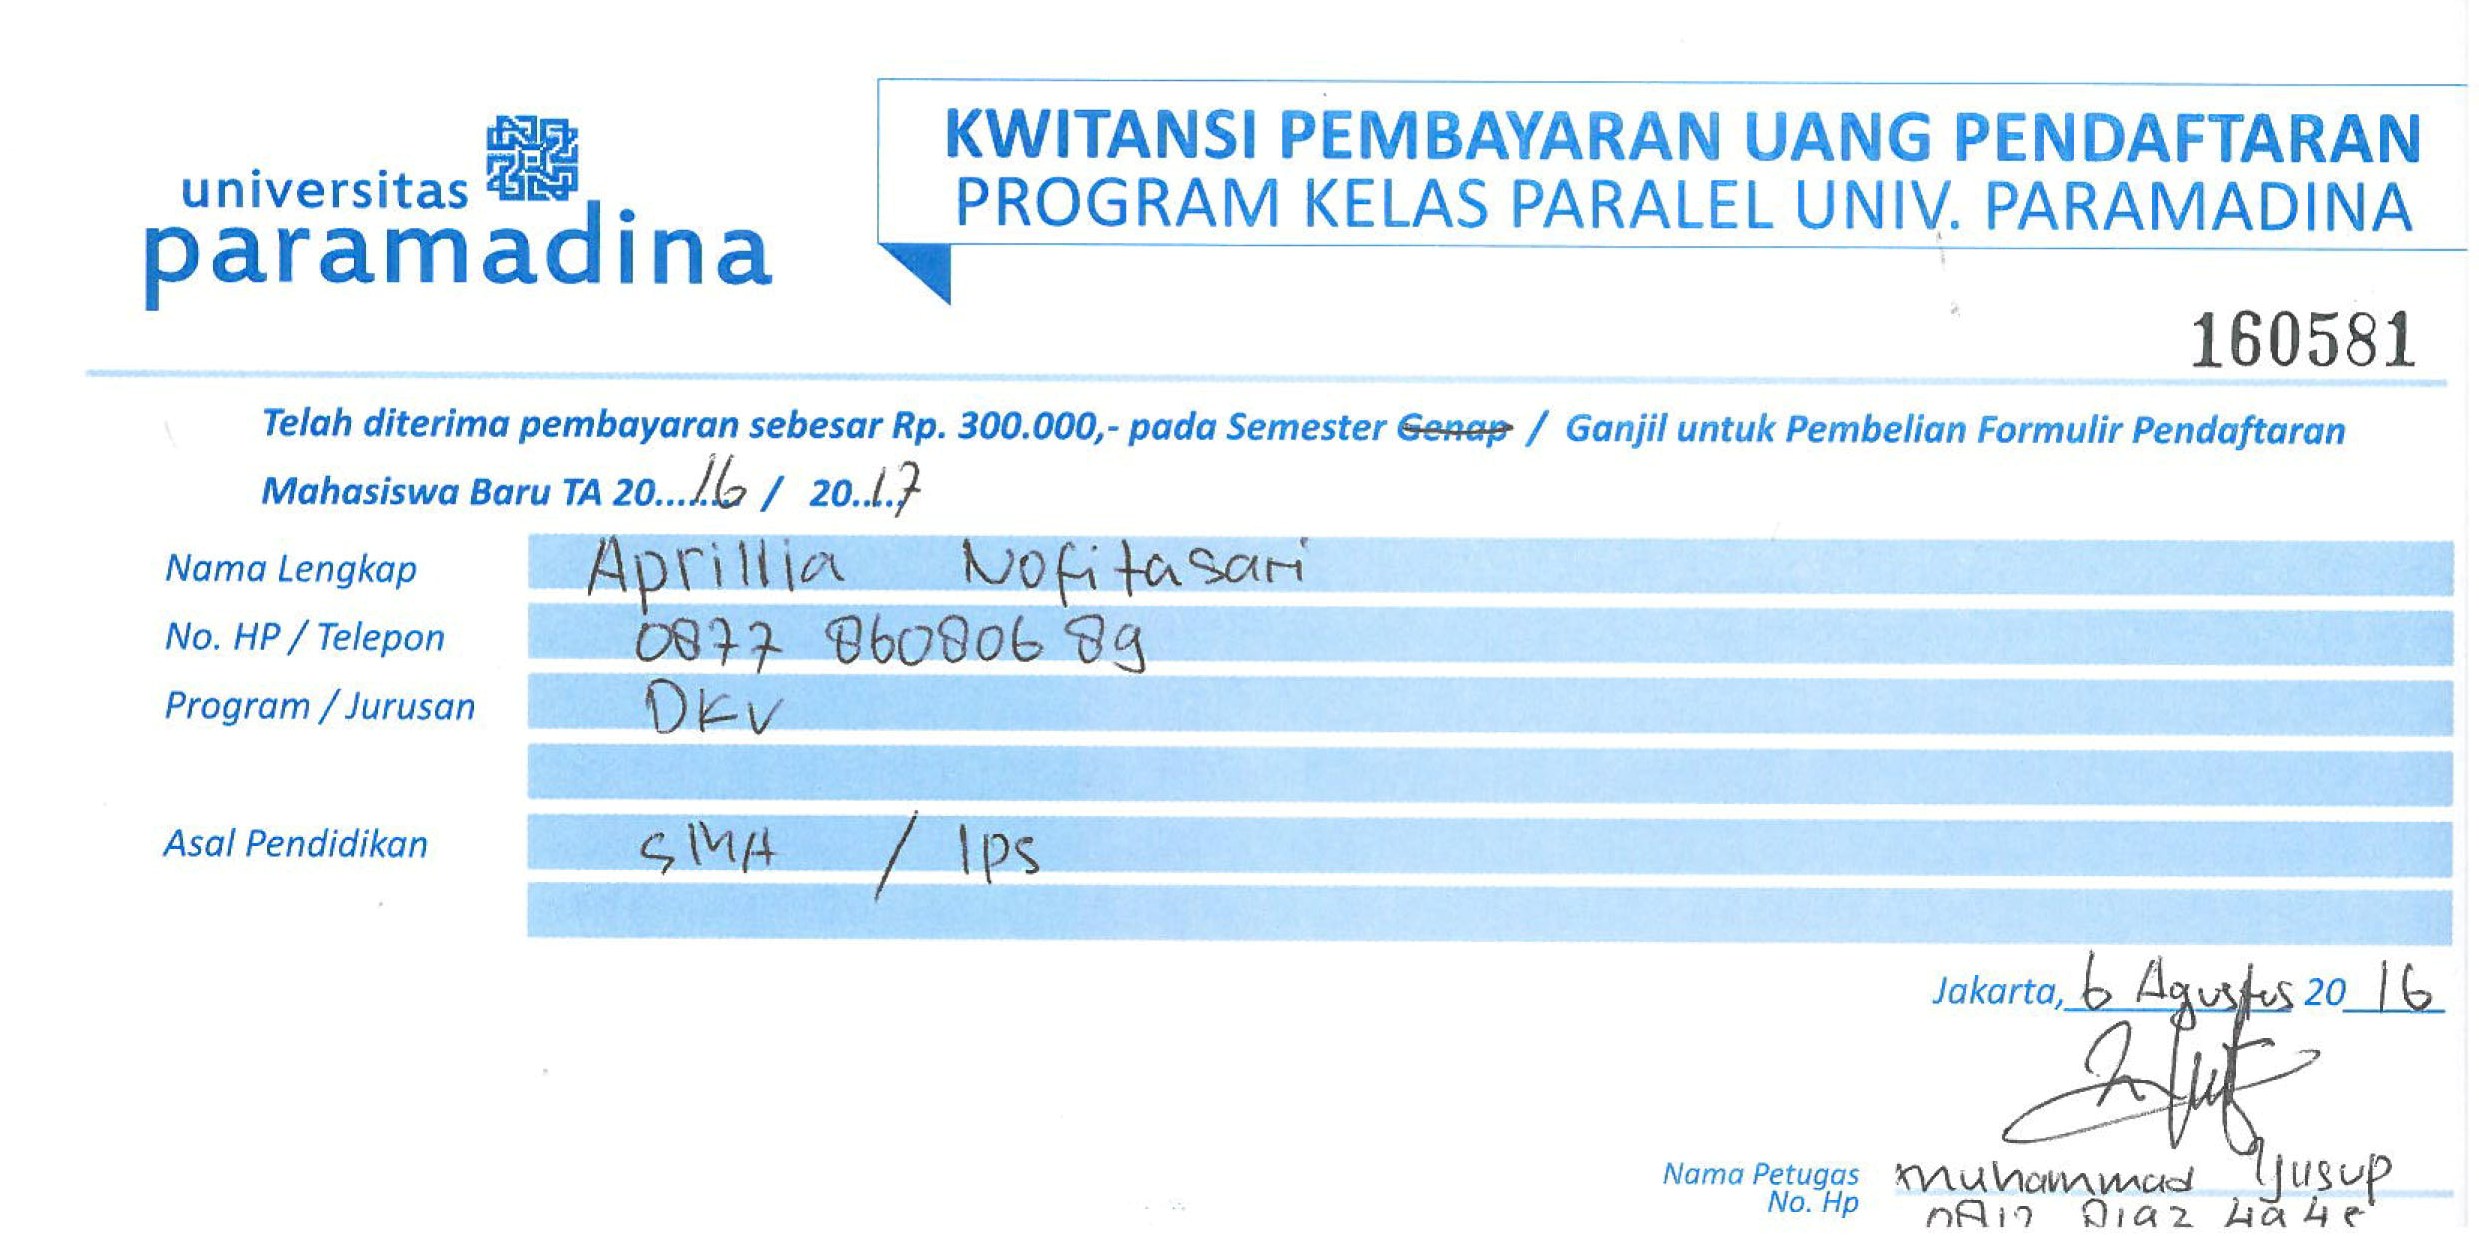 universitas
paramadina
KWITANSI PEMBAYARAN UANG PENDAFTARAN
PROGRAM KELAS PARALEL UNIV. PARAMADINA
160581
Telah diterima pembayaran sebesar Rp. 300.000,- pada Semester Genap / Ganjil untuk Pembelian Formulir Pendaftaran
Mahasiswa Baru TA 20...16 / 20..17
Nama Lengkap Aprillia Nofitasari
No. HP / Telepon 0877 860806 89
Program / Jurusan DKV
Asal Pendidikan SMA / IPS
Jakarta, 6 Agustus 20 16
Nama Petugas Muhammad Yusup
No. Hp